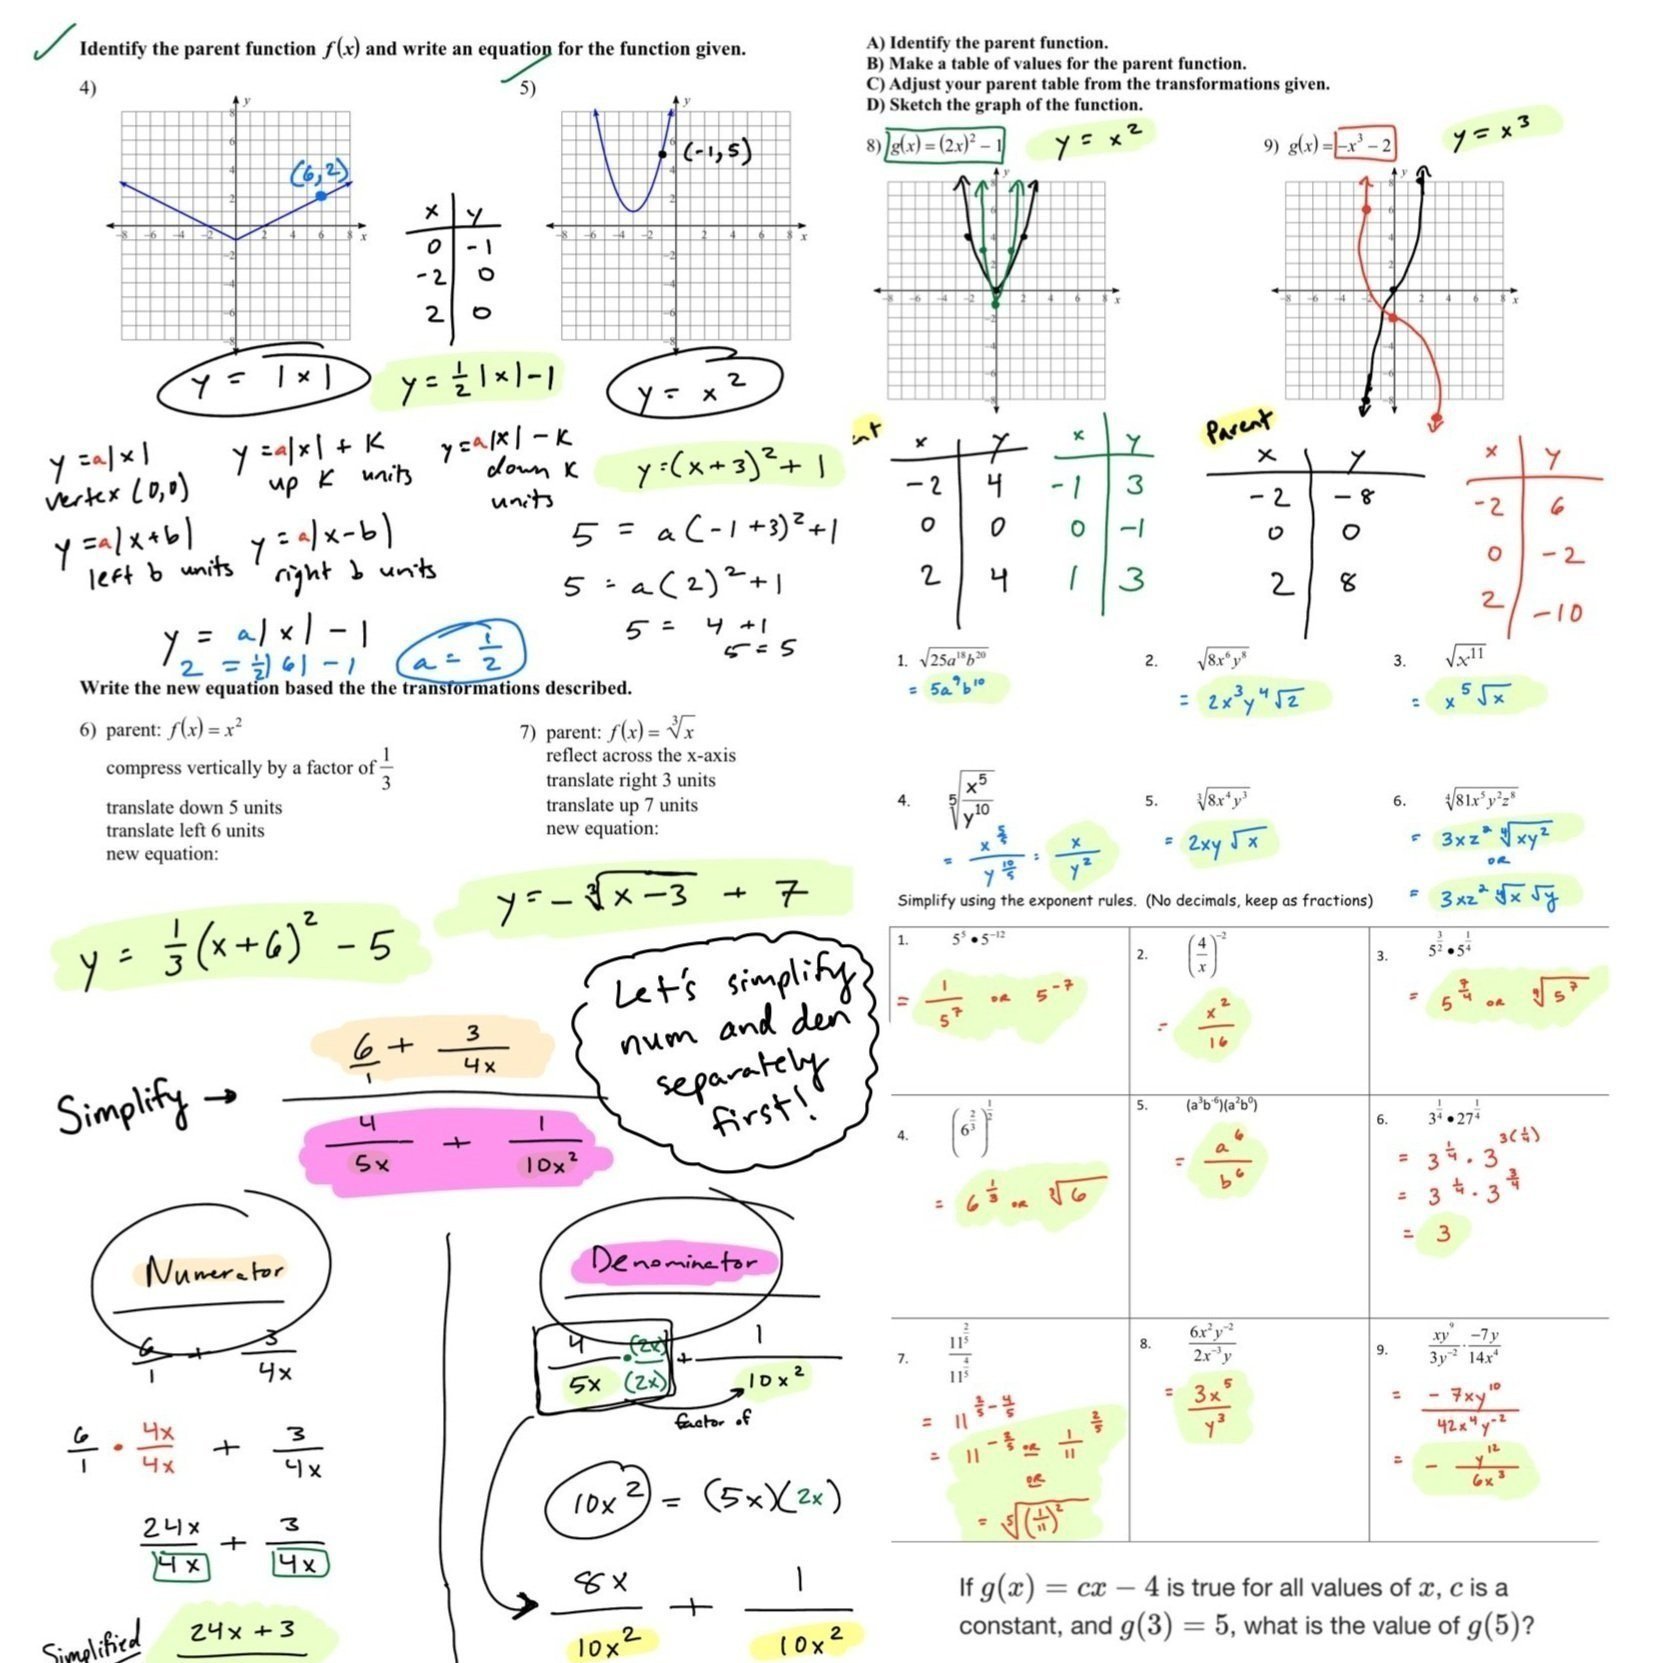 Identify the parent function f(x) and write an equation for the function given.
4)
y
x
(6,2)
x | y
0 | -1
-2 | 0
2 | 0
y = |x|
y = 1/2 |x| - 1
5)
y
x
(-1,5)
y = x²
y = a|x|
vertex (0,0)
y = a|x| + K
up K units
y = a|x| - K
down K
units
y = a|x+b|
left b units
y = a|x-b|
right b units
y = a|x| - 1
2 = 1/2|6| - 1
a = 1/2
y = (x+3)² + 1
5 = a(-1+3)² + 1
5 = a(2)² + 1
5 = 4 + 1
5 = 5
Write the new equation based the the transformations described.
6) parent: f(x) = x²
compress vertically by a factor of 1/3
translate down 5 units
translate left 6 units
new equation:
y = 1/3 (x+6)² - 5
7) parent: f(x) = ∛x
reflect across the x-axis
translate right 3 units
translate up 7 units
new equation:
y = -∛(x-3) + 7
Simplify →
6/1 + 3/4x
4/5x + 1/10x²
Let's simplify
num and den
separately
first!
Numerator
6/1 + 3/4x
6/1 • 4x/4x + 3/4x
24x/4x + 3/4x
Simplified
24x + 3
Denominator
4/5x • (2x)/(2x) + 1/10x²
factor of
10x² = (5x)(2x)
8x/10x² + 1/10x²
A) Identify the parent function.
B) Make a table of values for the parent function.
C) Adjust your parent table from the transformations given.
D) Sketch the graph of the function.
8) g(x) = (2x)² - 1
y = x²
y
x
nt
x | y
-2 | 4
0 | 0
2 | 4
x | y
-1 | 3
0 | -1
1 | 3
9) g(x) = -x³ - 2
y = x³
y
x
Parent
x | y
-2 | -8
0 | 0
2 | 8
x | y
-2 | 6
0 | -2
2 | -10
1. √(25a¹⁸b²⁰)
= 5a⁹b¹⁰
2. √(8x⁶y⁸)
= 2x³y⁴√2
3. √(x¹¹)
= x⁵√x
4. ⁵√(x⁵/y¹⁰)
= x^(5/5)/y^(10/5) = x/y²
5. ∛(8x⁴y³)
= 2xy∛x
6. ∜(81x⁵y²z⁸)
= 3xz² ∜(xy²)
OR
= 3xz² ∜x √y
Simplify using the exponent rules. (No decimals, keep as fractions)
1. 5⁵ • 5⁻¹²
= 1/5⁷ OR 5⁻⁷
2. (4/x)⁻²
= x²/16
3. 5^(3/2) • 5^(1/4)
= 5^(7/4) OR ∜(5⁷)
4. (6^(2/3))^(1/2)
= 6^(1/3) OR ∛6
5. (a³b⁻⁶)(a²b⁰)
= a⁶/b⁶
6. 3^(1/4) • 27^(1/4)
= 3^(1/4) • 3^(3(1/4))
= 3^(1/4) • 3^(3/4)
= 3
7. 11^(2/5)/11^(4/5)
= 11^(2/5 - 4/5)
= 11^(-2/5) OR 1/11^(2/5)
OR
= ⁵√((1/11)²)
8. 6x²y⁻²/2x⁻³y
= 3x⁵/y³
9. xy⁹/3y⁻² · -7y/14x⁴
= -7xy¹⁰/42x⁴y⁻²
= - y¹²/6x³
If g(x) = cx − 4 is true for all values of x, c is a
constant, and g(3) = 5, what is the value of g(5)?